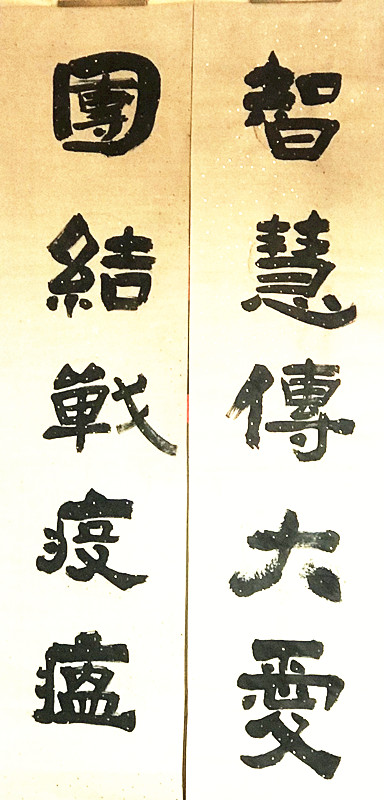 智慧傳大愛
團結戰疫瘟